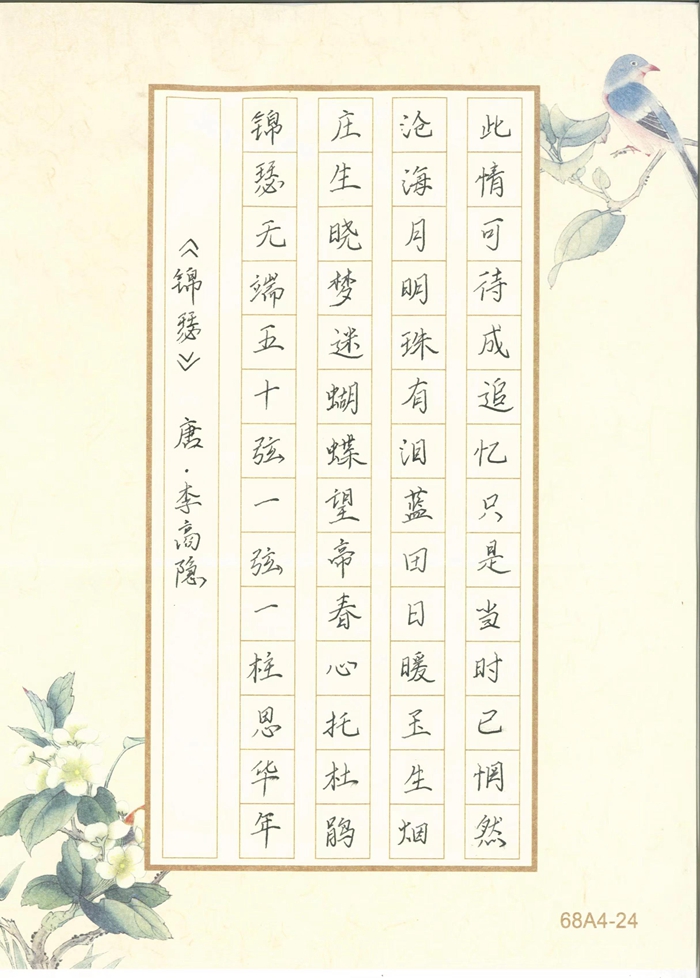 《锦瑟》 唐·李高隐
锦瑟无端五十弦一弦一柱思华年
庄生晓梦迷蝴蝶望帝春心托杜鹃
沧海月明珠有泪蓝田日暖玉生烟
此情可待成追忆只是当时已惘然
68A4-24